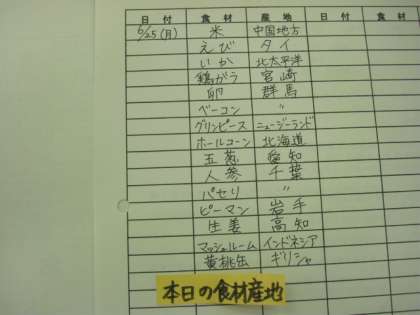 日付 食材 産地 日付 食材
6/25(月) 米 中国地方
えび タイ
いか 北太平洋
鶏ガラ 宮崎
卵 群馬
ベーコン 〃
グリンピース ニュージーランド
ホールコーン 北海道
玉葱 愛知
人参 千葉
パセリ 〃
ピーマン 岩手
生姜 高知
マッシュルーム インドネシア
黄桃缶 ギリシャ
本日の食材産地